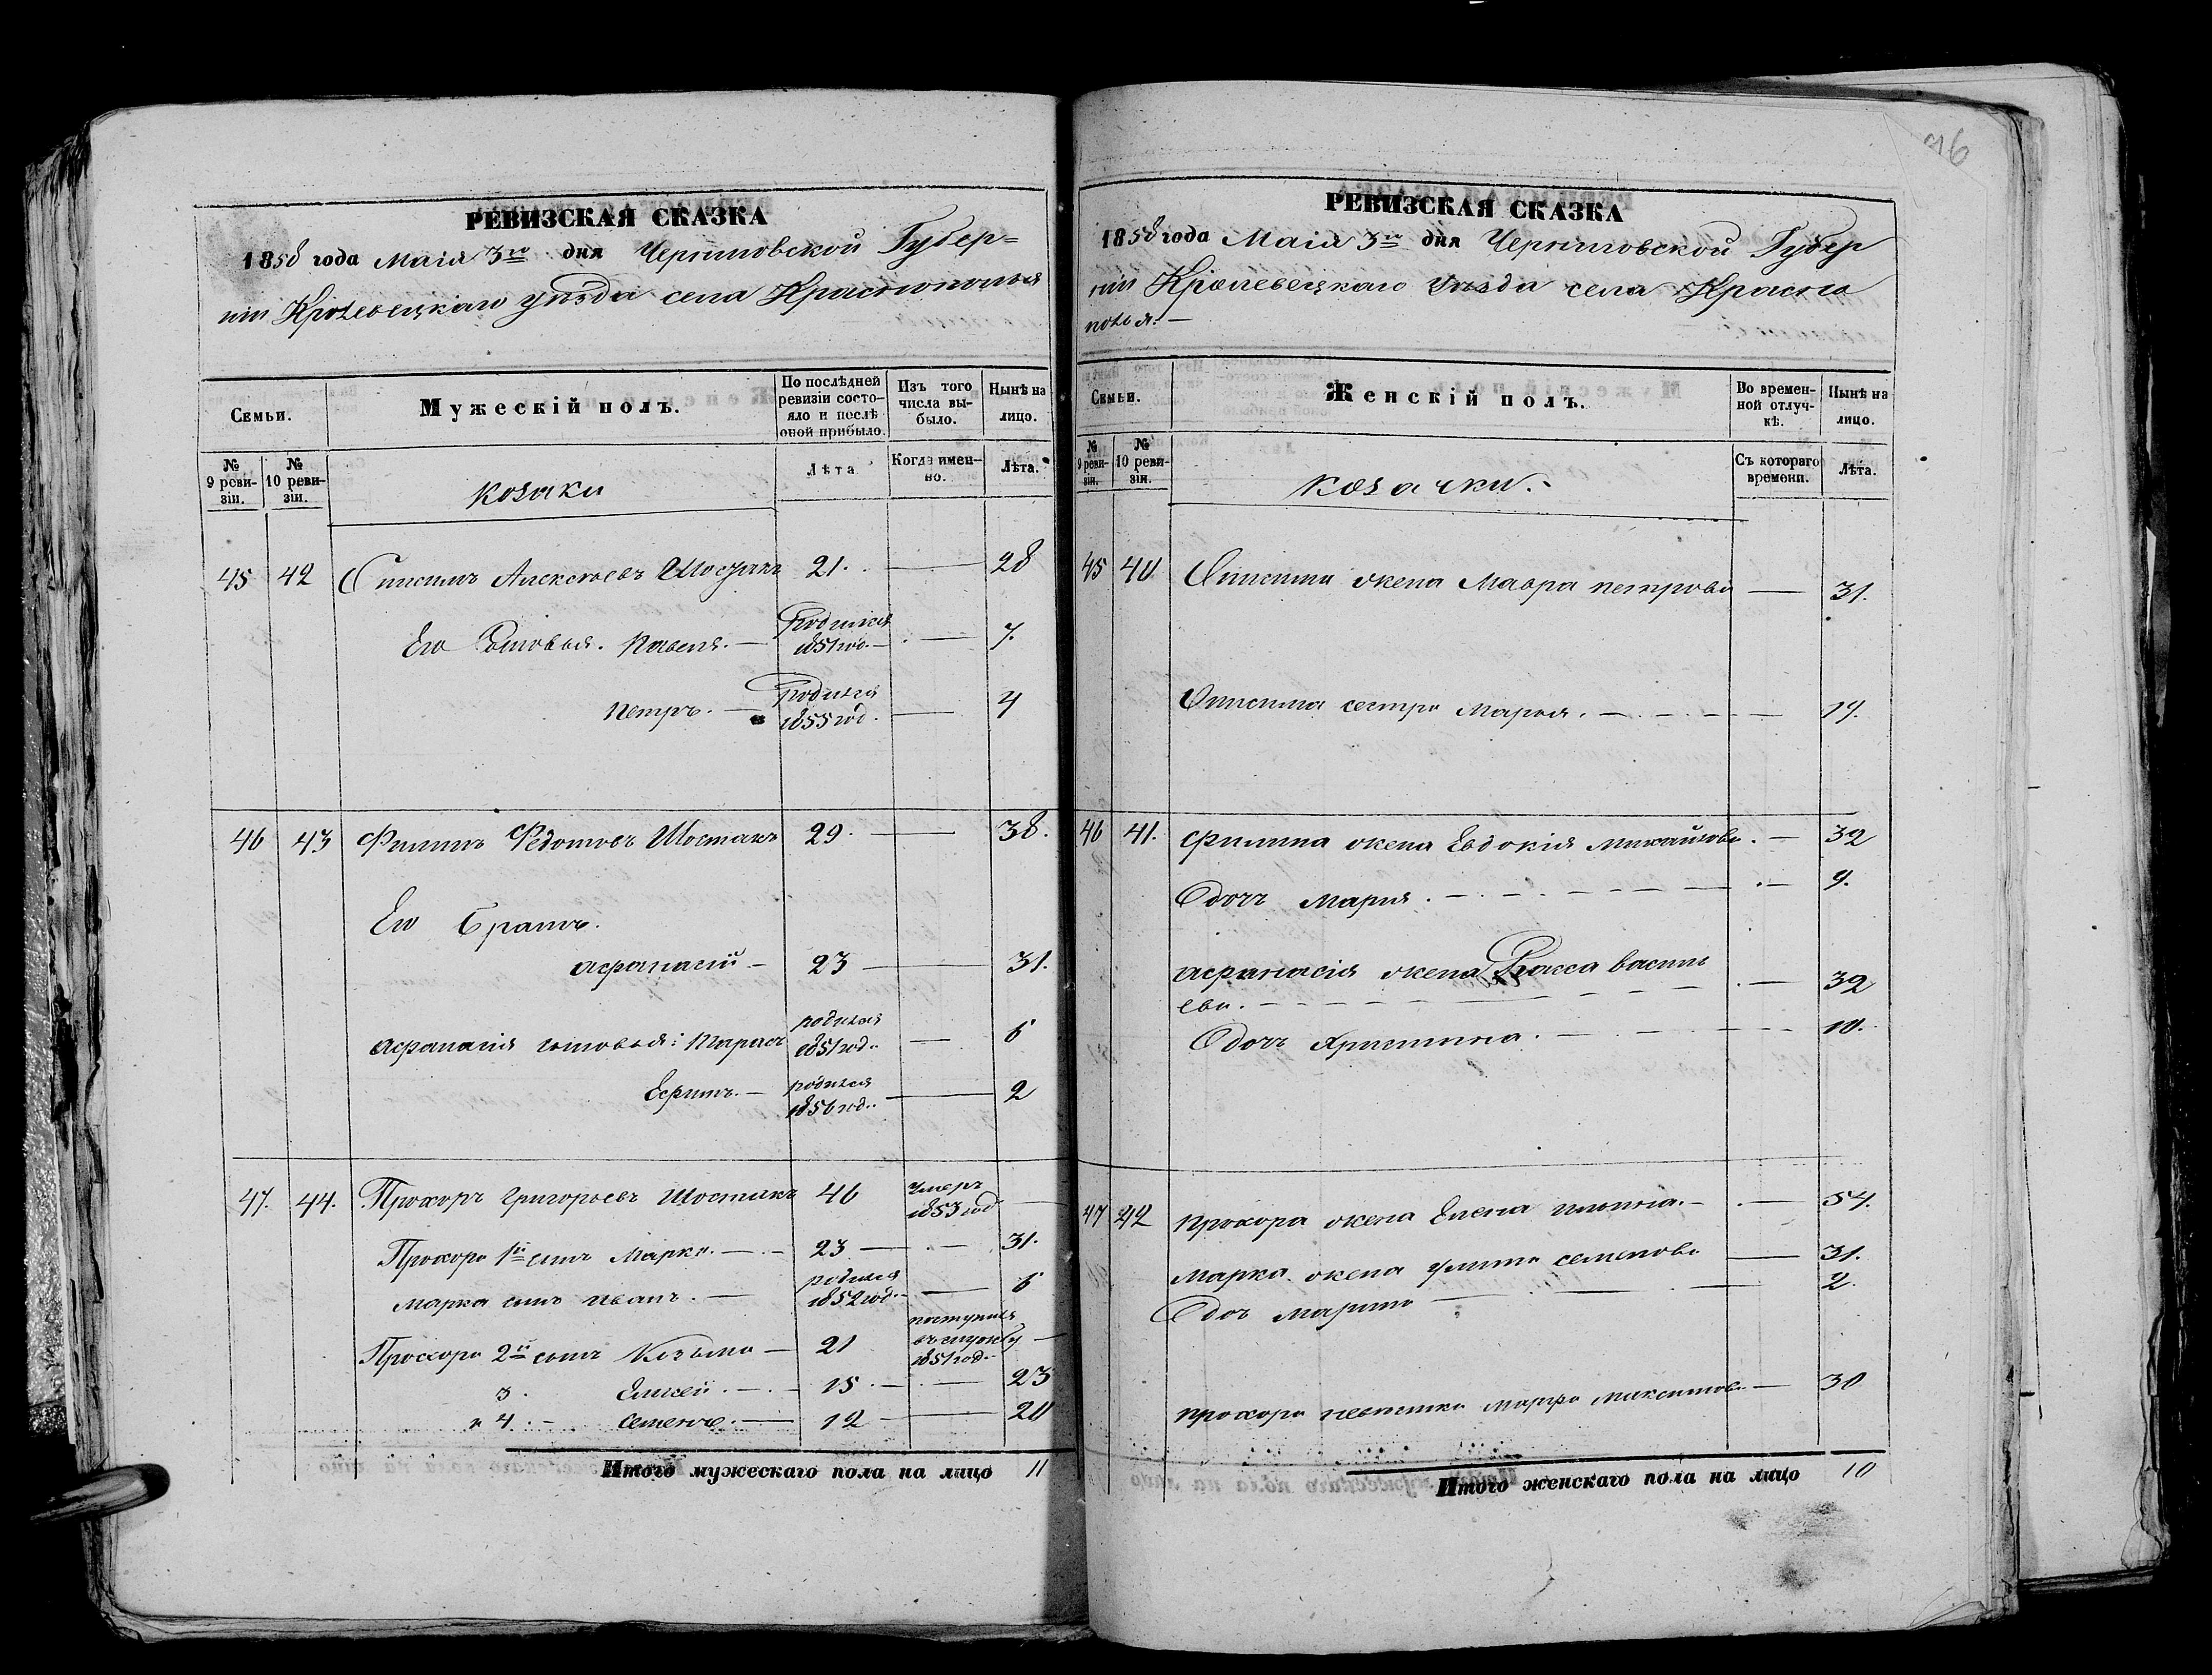 РЕВИЗСКАЯ СКАЗКА
1858 года Маія 3го дня Черниговской Губер=
ніи Кролевецкаго уѣзда села Краснополья
Семьи.
Мужескій полъ.
По послѣдней ревизіи состояло и послѣ оной прибыло.
Изъ того числа выбыло.
Нынѣ на лицо.
№ 9 ревизіи.
№ 10 ревизіи.
козаки
Лѣта
Когда именно.
Лѣта.
45 42 Онисимъ Алексѣевъ Шостакъ 21. — 28
Его сыновья. Павелъ. — родился 1851 год. — 7.
Петръ. — родился 1855 год. — 4
46 43 Филипъ Федотовъ Шостакъ 29. — 38.
Его Братъ.
Афанасій — 23 — 31.
Афанасія сыновья: Тарасъ родился 1851 год. — 6
Ефимъ. — родился 1856 год. — 2
47. 44. Прохоръ Григорьевъ Шостакъ 46 умеръ 1853 год —
Прохора 1й сынъ Марко. — 23 — 31.
Марка сынъ Иванъ. — родился 1852 год. — 6
Прохора 2й сынъ Козьма — 21 поступилъ въ службу 1851 год. —
3. Елисей. — 15. — 23
" 4. — Семенъ. — 12 — 20
Итого мужескаго пола на лицо 11
46
РЕВИЗСКАЯ СКАЗКА
1858 года Маія 3го дня Черниговской Губер
ніи Кролевецкаго уѣзда села Красно
полья. —
Семьи.
Женскій полъ.
Во временной отлучкѣ.
Нынѣ на лицо.
№ 9 ревизіи.
№ 10 ревизіи.
козачки.
Съ котораго времени.
Лѣта.
45 40 Онисима жена Мавра петрова — 31.
Онисима сестра Марья. — 19.
46 41. Филипа жена Евдокія михайлова. — 32
Ѻ дочь Мария. — 9.
Афанасія жена василь
ева. — 32
Ѻ дочь Христина. — 10.
47 42 Прохора жена Елена — 54.
Марка жена Улита семенова — 31.
Ѻ доч — 2.
прохора невѣстка Марфа Максимова — 30
Итого женскаго пола на лицо 10